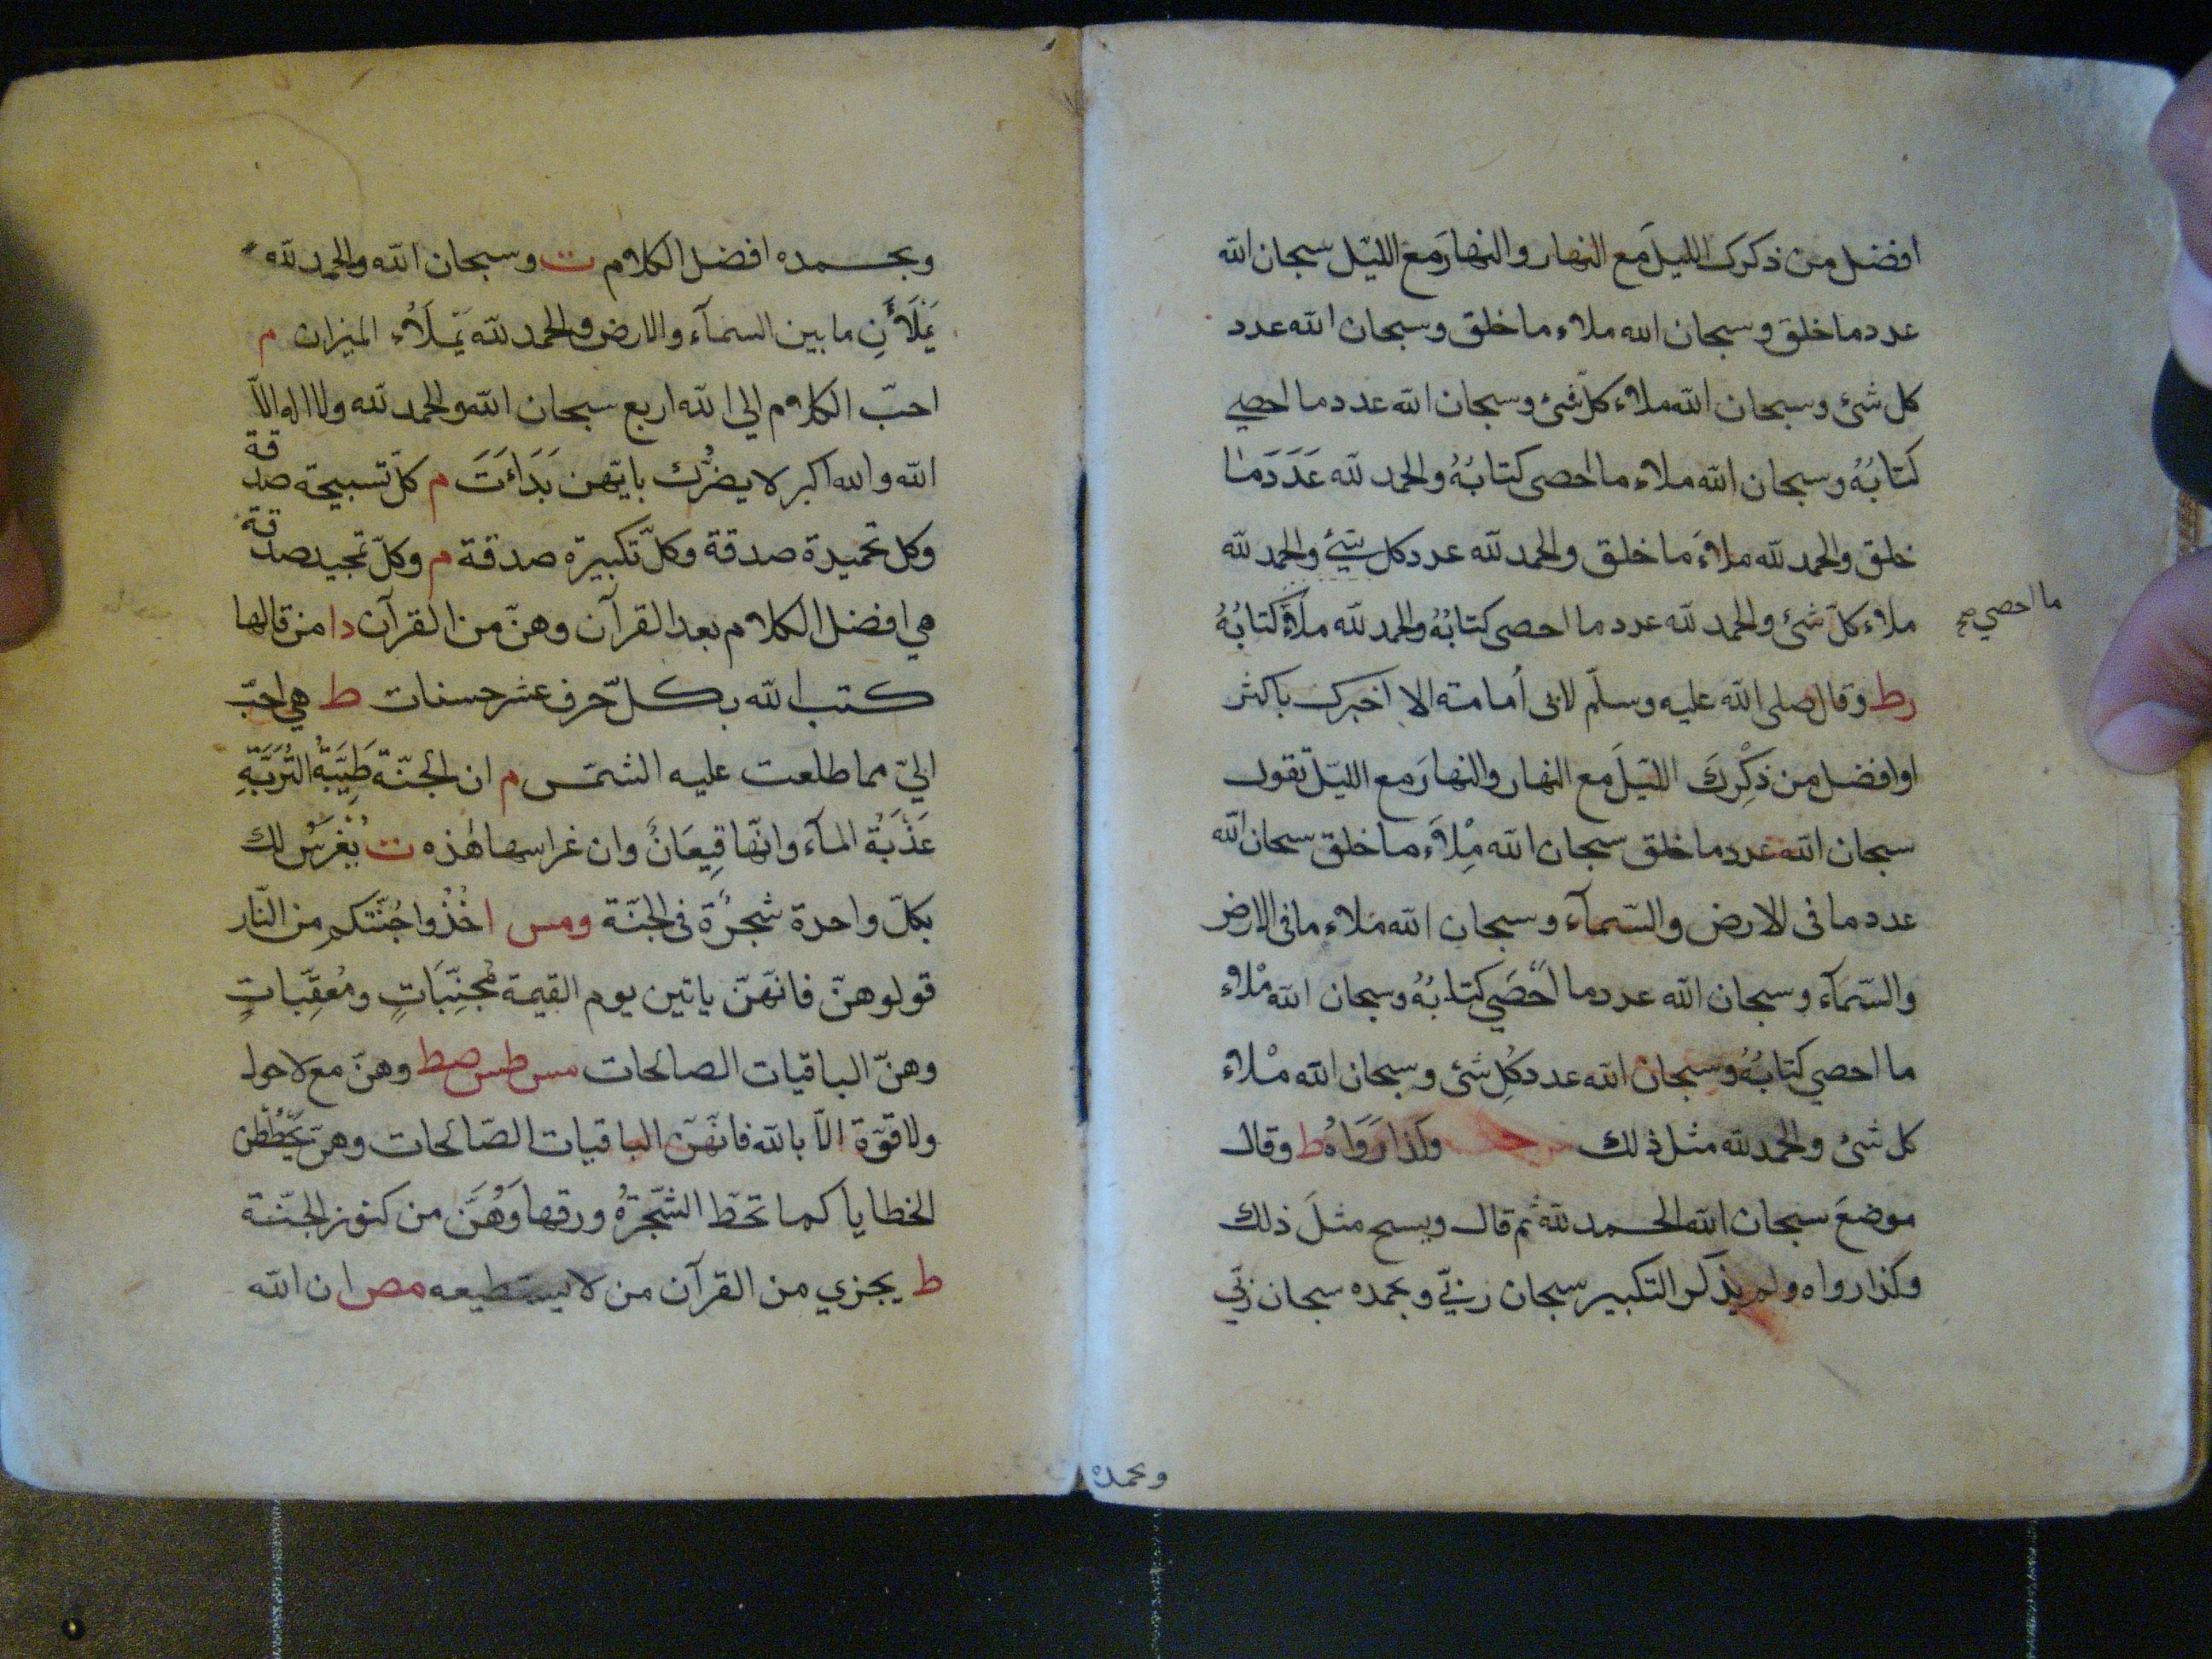 افضل من ذكرك الليلَ مَع النهار والنهارَ مَع الليّل سبحان الله
عدد ما خلق وسبحان الله ملاء ما خلق وسبحان الله عدد
كل شئ وسبحان الله ملاء كلّ شئ وسبحان الله عدد ما احصي
كتابُهُ وسبحان الله ملاء ما احصى كتابُهُ والحمد لله عَدَدَ مَا
خلق والحمد لله ملاءَ ما خلق والحمد لله عدد كل شيئ والحمد لله
ملاء كلّ شئ والحمد لله عدد ما احصى كتابُهُ والحمد لله ملآءَ كتابُهُ
ما احصي صح
رط وقال صلى الله عليه وسلّم لابى اُمامة الا اخبرك باكثر
او افضل من ذكْرِكَ الليّلَ مع النهار والنهارَ مع الليّل تقول
سبحان الله عدد ما خلق سبحان الله مِلْاَء ما خلق سبحان الله
عدد ما فى الارض والسّمآء وسبحان الله ملاء ما فى الارض
والسّمآء وسبحان الله عدد ما اَحْصَي كتابُهُ وسبحان الله مْلاء
ما احصي كتابُهُ وسبحان الله عدد كُلِ شئ وسبحان الله مْلاء
كل شئ والحمد لله مثل ذلك وكذا رَوَاهُ ط وقال
موضعَ سبحان الله الحمد لله ثم قال ويسبح مثلَ ذلك
وكذا رواه ولم يذكر التكبير سبحان ربّي وبحمده سبحان ربّي
وبحمده
وبحمده افضل الكلام ت وسبحان الله والحمد لله
يَمْلَأَنِ ما بين السمآء والارض والحمد لله يَمْلَاُء الميزان م
احبّ الكلام الي الله اربع سبحان الله والحمد لله ولا اله الاّ
الله والله اكبر لا يضرُّك بايّهن بَدَاءَتَ م كلّ تسبيحة صدقة
وكل تحميدة صدقة وكلّ تكبيرة صدقة م وكلّ تمجيد صدقة
هي افضل الكلام بعد القرآن وهنّ من القرآن دا من قالها
كتب الله بكلّ حرف عشر حسنات ط هي احبّ
اليّ مما طلعت عليه الشمس م ان الجنّة طَيِّبَةُ التُرَبَةِ
عَذْبَةُ المآء وانّها قِيعَانُ وان غراسها هٰذه ت يُغْرَسُ لك
بكلّ واحدة شجرُة فى الجنّة ومس اخُذُوا جُنّتكم من النّار
قولوهنّ فانّهنّ ياتين يوم القيمة مُجنِّبَاتٍ ومُعقِّبَاتٍ
وهنّ الباقيات الصالحات مس طس صط وهنّ مع لا حول
ولا قوّة الاّ بالله فانّهنّ الباقيات الصّالحات وهنّ يَحْطُطْن
الخطايا كما تحطّ الشّجرةُ ورقها وَهُنَّ من كنوز الجنّة
ط يجزي من القرآن من لا يستطيعه مص ان الله